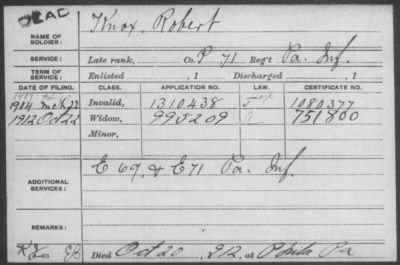 Knox, Robert
NAME OF SOLDIER:
SERVICE: Late rank, Co. P 71 Reg't Pa. Inf.
TERM OF SERVICE: Enlisted , 1 Discharged , 1
DATE OF FILING. CLASS. APPLICATION NO. LAW. CERTIFICATE NO.
1904 Mch 22 Invalid, 1310438 1080377
1912 Oct 22 Widow, 995209 751800
Minor,
ADDITIONAL SERVICES: E 69, & E 71 Pa. Inf.
REMARKS:
Died Oct 20, 912, at Phila Pa